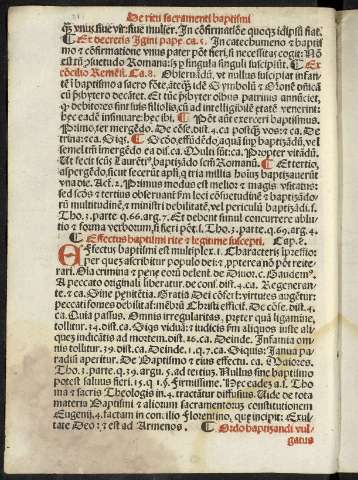 De ritu sacramenti baptismi
qͥ vnus, siue vir, siue mulier. In cōfirmatiōe quoqꝫ idipsū fiat.
¶ Ex decretis Igini pape. ca. 1. In catechumeno & baptis
mo & cōfirmatione vnus pater pōt fieri, si necessitas cogit: Nō
est tn̄ ꝯsuetudo Romana: sꝫ p singula singuli suscipiūt. ¶ Ex
cōcilio Remēsi. Ca. 8. Obseruādū, vt nullus suscipiat infan
tē i baptismo a sacro fōte,
cū p̄sbytero dicāt. Et tūc oībus patrinis annūciet,
ꝙ debitores sint suis filiolis, cū ad intelligibilē etatē venerint:
hec eadē insinuare.hec ibi. ¶ Pōt aūt exerceri baptismus.
Primo, ter mergēdo. De cōse. dist. 4. ca postꝙ̄ vos: & ca. De
trina: & ca. Siqs. ¶ Scdo effūdēdo, aquā sup baptizādū, vel
semel tm̄ imergēdo ea dist. ca. Multi sūt ca. Propter vitādū.
Ut fecit scūs Laurētiꝰ, baptizādo scm̄ Romanū. ¶ Et tertio,
aspergēdo, sicut fecerūt apli, q̄ tria millia hoīuꝫ baptizauerūt
vna die. Act. 2. Primus modus est melior & magis vsitatus:
sed scds & tertius obseruant̄ fm̄ loci cōsuetudinē & baptizādoꝝ
multitudinē, & ministri debilitatē, vel periculū baptizādi. s.
Tho. 3. parte q. 66. arg. 7. Et debent simul concurrere ablu
tio & forma verborum, si fieri pōt. s. Tho. 3. parte. q. 69. arg. 4.
¶ Effectus baptismi rite & legitime suscepti. Cap. 8.
EFfectus baptismi est multiplex. 1. Characteris īpressio:
per ques ascribitur populo dei: 2. ppterea nō pōt reite
rari. Oīa crimina & penę eorū delent. de Diuor. c. Gaudemꝰ.
A peccato originali liberatur. de cons. dist. 4. ca. Regeneran
te. & ca. Sine penitētia. Gratia Dei cōfert̄: virtutes augēt̄ur:
peccati fomes debilitaf: mēbrū Christi efficit̄. De cōse. dist. 4.
ca. Cuia passus. Omnis irregularitas, preter quā ligamine,
tollitur. 34. dist. ca. Siqs viduā: & iudicis sm̄ aliquos iuste ali
ques indicātis ad mortem. dist. 26. ca. Deinde. Infamia om
nis tollitur. 39. dist. ca. Deinde. 1. q. 7. ca. Siquis: Janua pa
radisi aperitur. De Baptismo & eius effectu. ca. Maiores.
Tho. 3. parte. q. 39. argu. 5. ad tertiū. Nullus sine baptismo
potest saluus fieri. 15. q. 1. §. Firmissime. Nec eadez a. s. Tho
ma & sacris Theologis in. 4. tractātur diffusius. Uide de tota
materia Baptismi & aliorum sacramentorum constitutionem
Eugenij. 4. factam in concilio florentino, que incipit: Exul
tate Deo: & est ad Armenos. ¶ Ordo baptizandi vul-
gatus